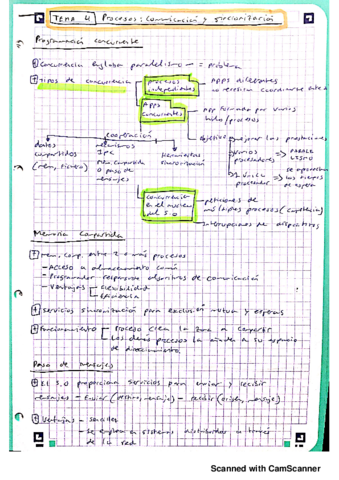 TEMA 4 Procesos: comunicación y sincronización
Programación concurrente
Concurrencia engloba paralelismo → = problema
Tipos de concurrencia
procesos independientes → Apps diferentes
no necesitan coordinarse
Apps concurrentes → App formada por varios
hilos/procesos
Objetivo → mejorar las prestaciones
cooperación
datos compartidos
(mem, fichero)
mecanismos IPC
mem compartida
o paso de
mensajes
Herramientas
sincronización
varios procesadores → PARALELISMO
1 único procesador → se aprovechan
los tiempos
de espera
concurrencia
en el núcleo
del S.O
peticiones de
múltiples procesos (competencia)
interrupciones de dispositivos
Memoria Compartida
mem. comp. entre 2 o más procesos
- Acceso a almacenamiento común
- Programador responsable algoritmos de comunicación
- Ventajas flexibilidad
eficiencia
servicios sincronización para exclusión mutua y esperas
funcionamiento Proceso crea la zona a compartir
Los demás procesos la añade a su espacio
de direccionamiento.
Paso de mensajes
El S.O proporciona servicios para enviar y recibir
mensajes - Enviar (destino, mensaje) - recibir (origen, mensaje)
Ventajas - sencillez
- se emplea en sistemas distribuidos a través
de la red
Scanned with CamScanner